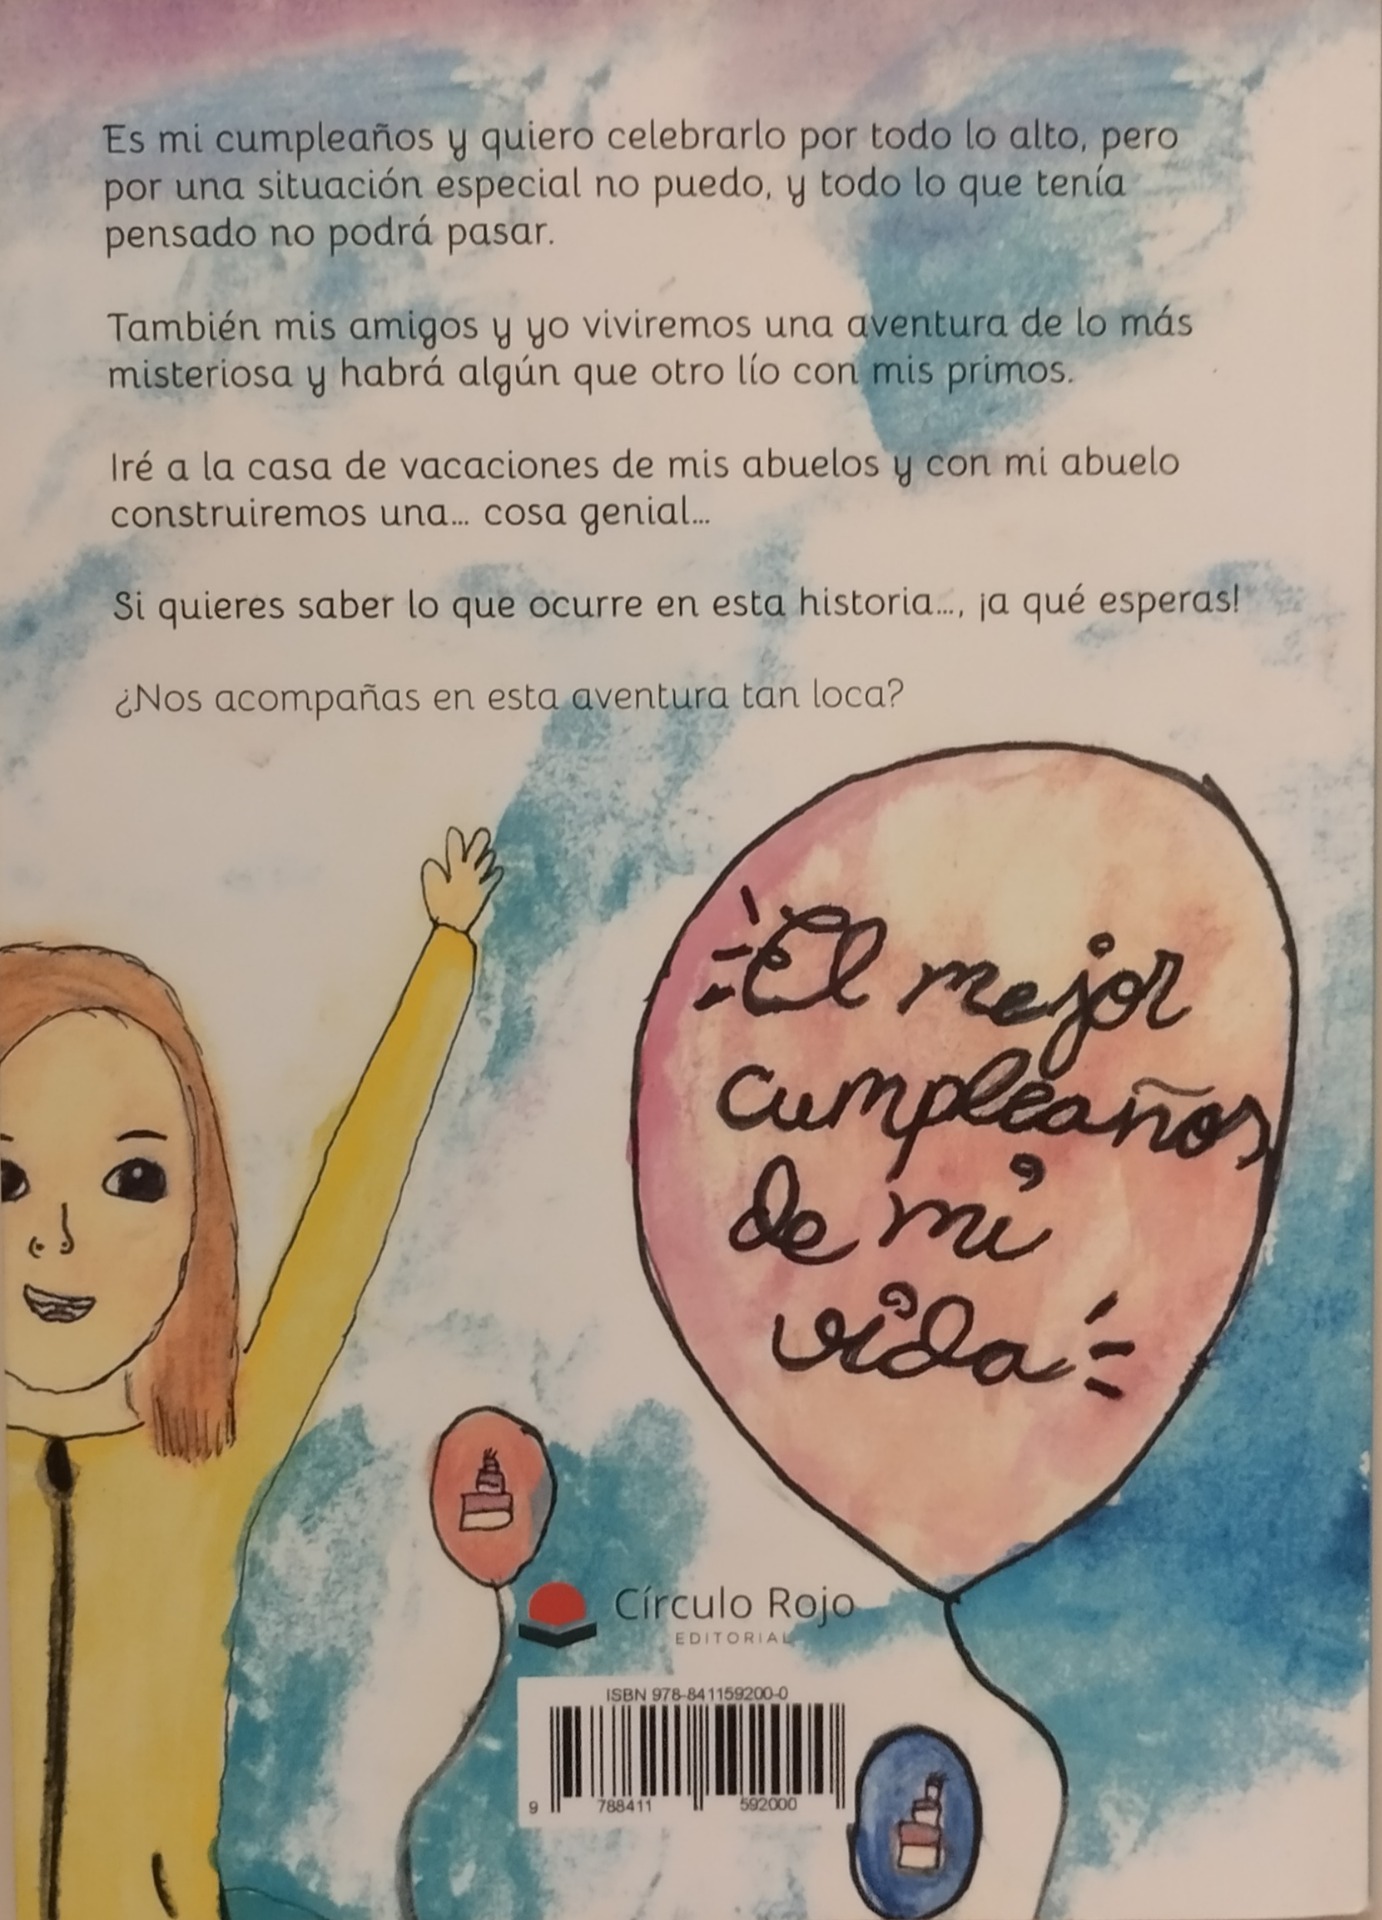 Es mi cumpleaños y quiero celebrarlo por todo lo alto, pero
por una situación especial no puedo, y todo lo que tenía
pensado no podrá pasar.
También mis amigos y yo viviremos una aventura de lo más
misteriosa y habrá algún que otro lío con mis primos.
Iré a la casa de vacaciones de mis abuelos y con mi abuelo
construiremos una... cosa genial...
Si quieres saber lo que ocurre en esta historia..., ¡a qué esperas!
¿Nos acompañas en esta aventura tan loca?
El mejor
cumpleaños
de mi
vida
Círculo Rojo
EDITORIAL
ISBN 978-841159200-0
9 788411 592000